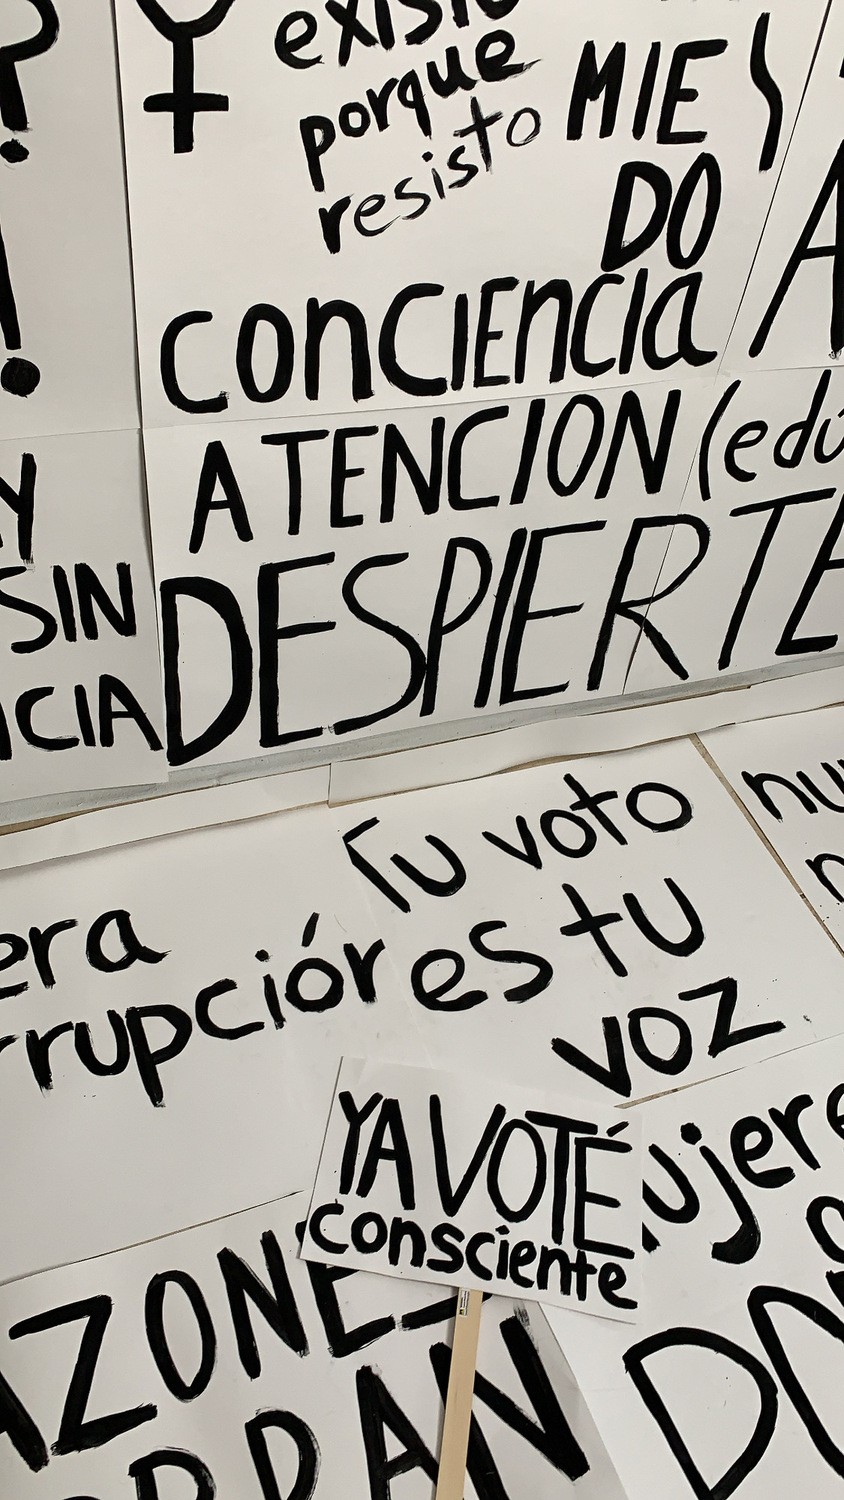 existo
porque
resisto
MIE
DO
conciencia
ATENCION (edú
DESPIERTE
SIN
CIA
Tu voto
es tu
voz
era
rrupción
YA VOTÉ
consciente
ujere
AZONES